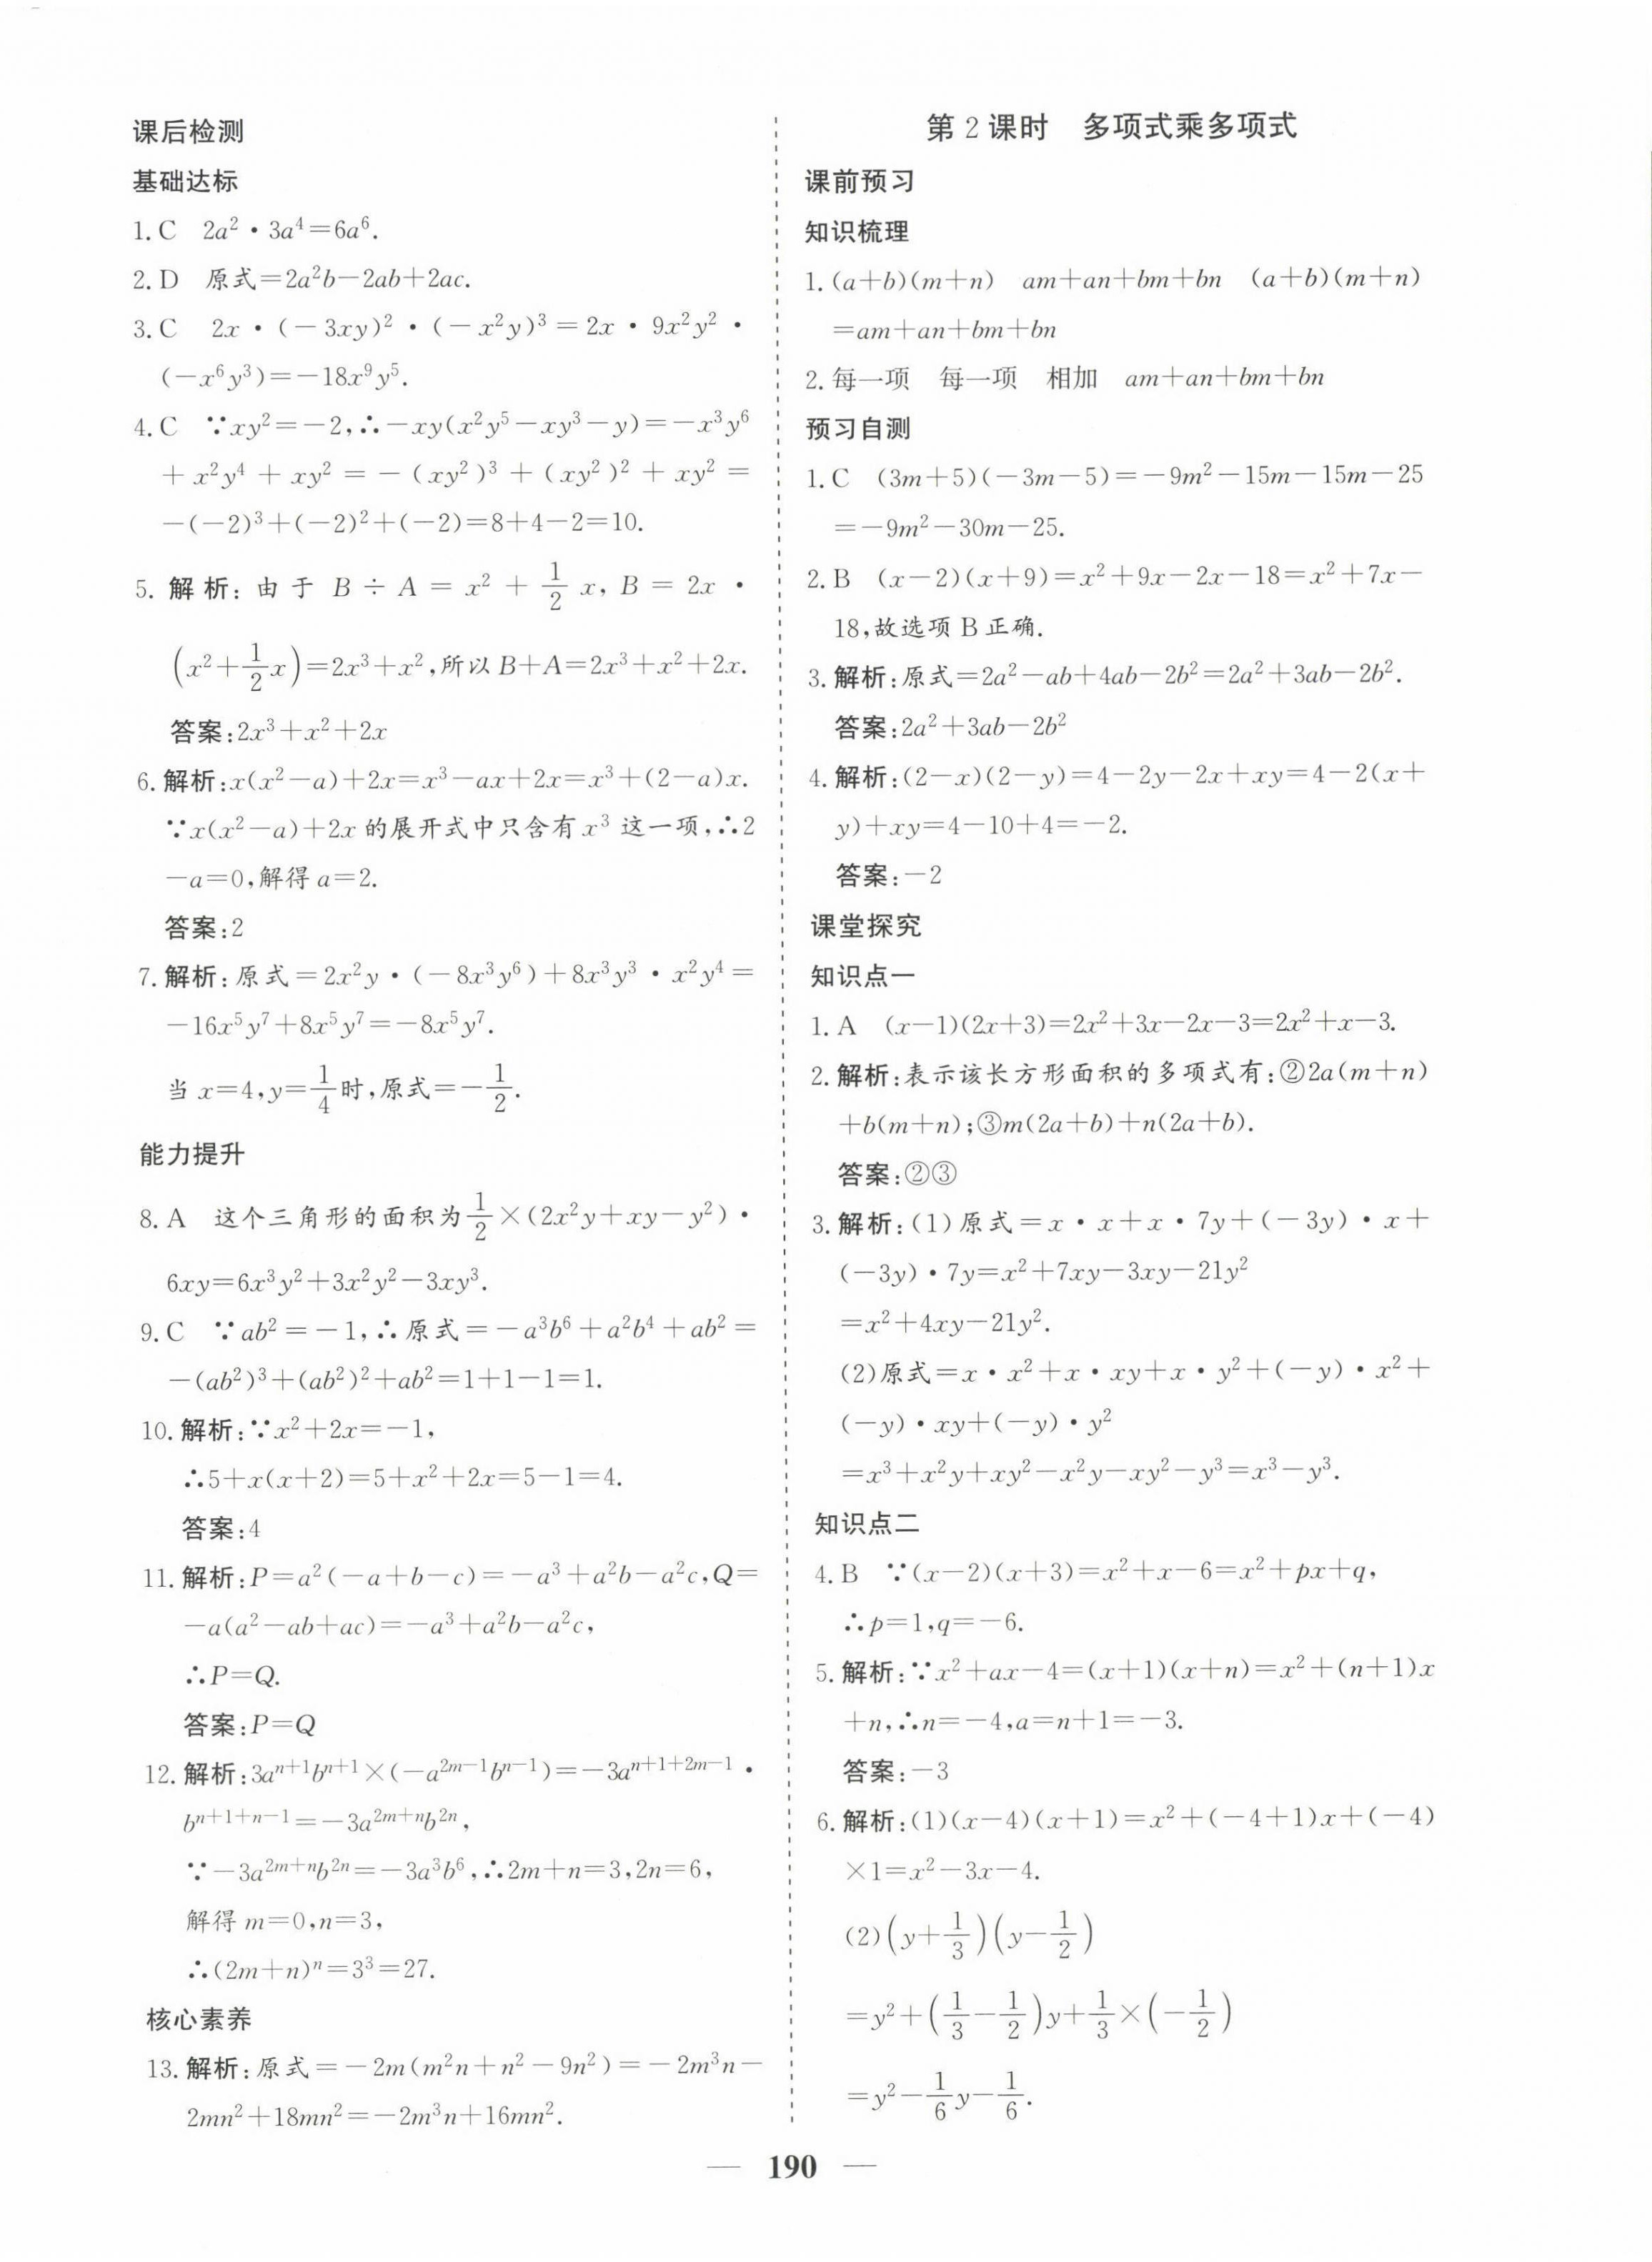 课后检测
基础达标
1. C　2a²·3a⁴=6a⁶.
2. D　原式=2a²b-2ab+2ac.
3. C　2x·(-3xy)²·(-x²y)³=2x·9x²y²·
(-x⁶y³)=-18x⁹y⁵.
4. C　∵xy²=-2,∴-xy(x²y⁵-xy³-y)=-x³y⁶
+x²y⁴+xy²=-(xy²)³+(xy²)²+xy²=
-(-2)³+(-2)²+(-2)=8+4-2=10.
5. 解析:由于 B÷A=x²+1/2 x, B=2x·
(x²+1/2 x)=2x³+x²,所以 B+A=2x³+x²+2x.
答案:2x³+x²+2x
6. 解析:x(x²-a)+2x=x³-ax+2x=x³+(2-a)x.
∵x(x²-a)+2x 的展开式中只含有 x³ 这一项,∴2
-a=0,解得 a=2.
答案:2
7. 解析:原式=2x²y·(-8x³y⁶)+8x³y³·x²y⁴=
-16x⁵y⁷+8x⁵y⁷=-8x⁵y⁷.
当 x=4,y=1/4时,原式=-1/2.
能力提升
8. A　这个三角形的面积为1/2×(2x²y+xy-y²)·
6xy=6x³y²+3x²y²-3xy³.
9. C　∵ab²=-1,∴原式=-a³b⁶+a²b⁴+ab²=
-(ab²)³+(ab²)²+ab²=1+1-1=1.
10. 解析:∵x²+2x=-1,
∴5+x(x+2)=5+x²+2x=5-1=4.
答案:4
11. 解析:P=a²(-a+b-c)=-a³+a²b-a²c,Q=
-a(a²-ab+ac)=-a³+a²b-a²c,
∴P=Q.
答案:P=Q
12. 解析:3aⁿ⁺¹bⁿ⁺¹×(-a²ᵐ⁻¹bⁿ⁻¹)=-3aⁿ⁺¹⁺²ᵐ⁻¹·
bⁿ⁺¹⁺ⁿ⁻¹=-3a²ᵐ⁺ⁿb²ⁿ,
∵-3a²ᵐ⁺ⁿb²ⁿ=-3a³b⁶,∴2m+n=3,2n=6,
解得 m=0,n=3,
∴(2m+n)ⁿ=3³=27.
核心素养
13. 解析:原式=-2m(m²n+n²-9n²)=-2m³n-
2mn²+18mn²=-2m³n+16mn².
第 2 课时　多项式乘多项式
课前预习
知识梳理
1. (a+b)(m+n)　am+an+bm+bn　(a+b)(m+n)
=am+an+bm+bn
2. 每一项　每一项　相加　am+an+bm+bn
预习自测
1. C　(3m+5)(-3m-5)=-9m²-15m-15m-25
=-9m²-30m-25.
2. B　(x-2)(x+9)=x²+9x-2x-18=x²+7x-
18,故选项 B 正确.
3. 解析:原式=2a²-ab+4ab-2b²=2a²+3ab-2b².
答案:2a²+3ab-2b²
4. 解析:(2-x)(2-y)=4-2y-2x+xy=4-2(x+
y)+xy=4-10+4=-2.
答案:-2
课堂探究
知识点一
1. A　(x-1)(2x+3)=2x²+3x-2x-3=2x²+x-3.
2. 解析:表示该长方形面积的多项式有:②2a(m+n)
+b(m+n);③m(2a+b)+n(2a+b).
答案:②③
3. 解析:(1)原式=x·x+x·7y+(-3y)·x+
(-3y)·7y=x²+7xy-3xy-21y²
=x²+4xy-21y².
(2)原式=x·x²+x·xy+x·y²+(-y)·x²+
(-y)·xy+(-y)·y²
=x³+x²y+xy²-x²y-xy²-y³=x³-y³.
知识点二
4. B　∵(x-2)(x+3)=x²+x-6=x²+px+q,
∴p=1,q=-6.
5. 解析:∵x²+ax-4=(x+1)(x+n)=x²+(n+1)x
+n,∴n=-4,a=n+1=-3.
答案:-3
6. 解析:(1)(x-4)(x+1)=x²+(-4+1)x+(-4)
×1=x²-3x-4.
(2)(y+1/3)(y-1/2)
=y²+(1/3-1/2)y+1/3×(-1/2)
=y²-1/6 y-1/6.
— 190 —